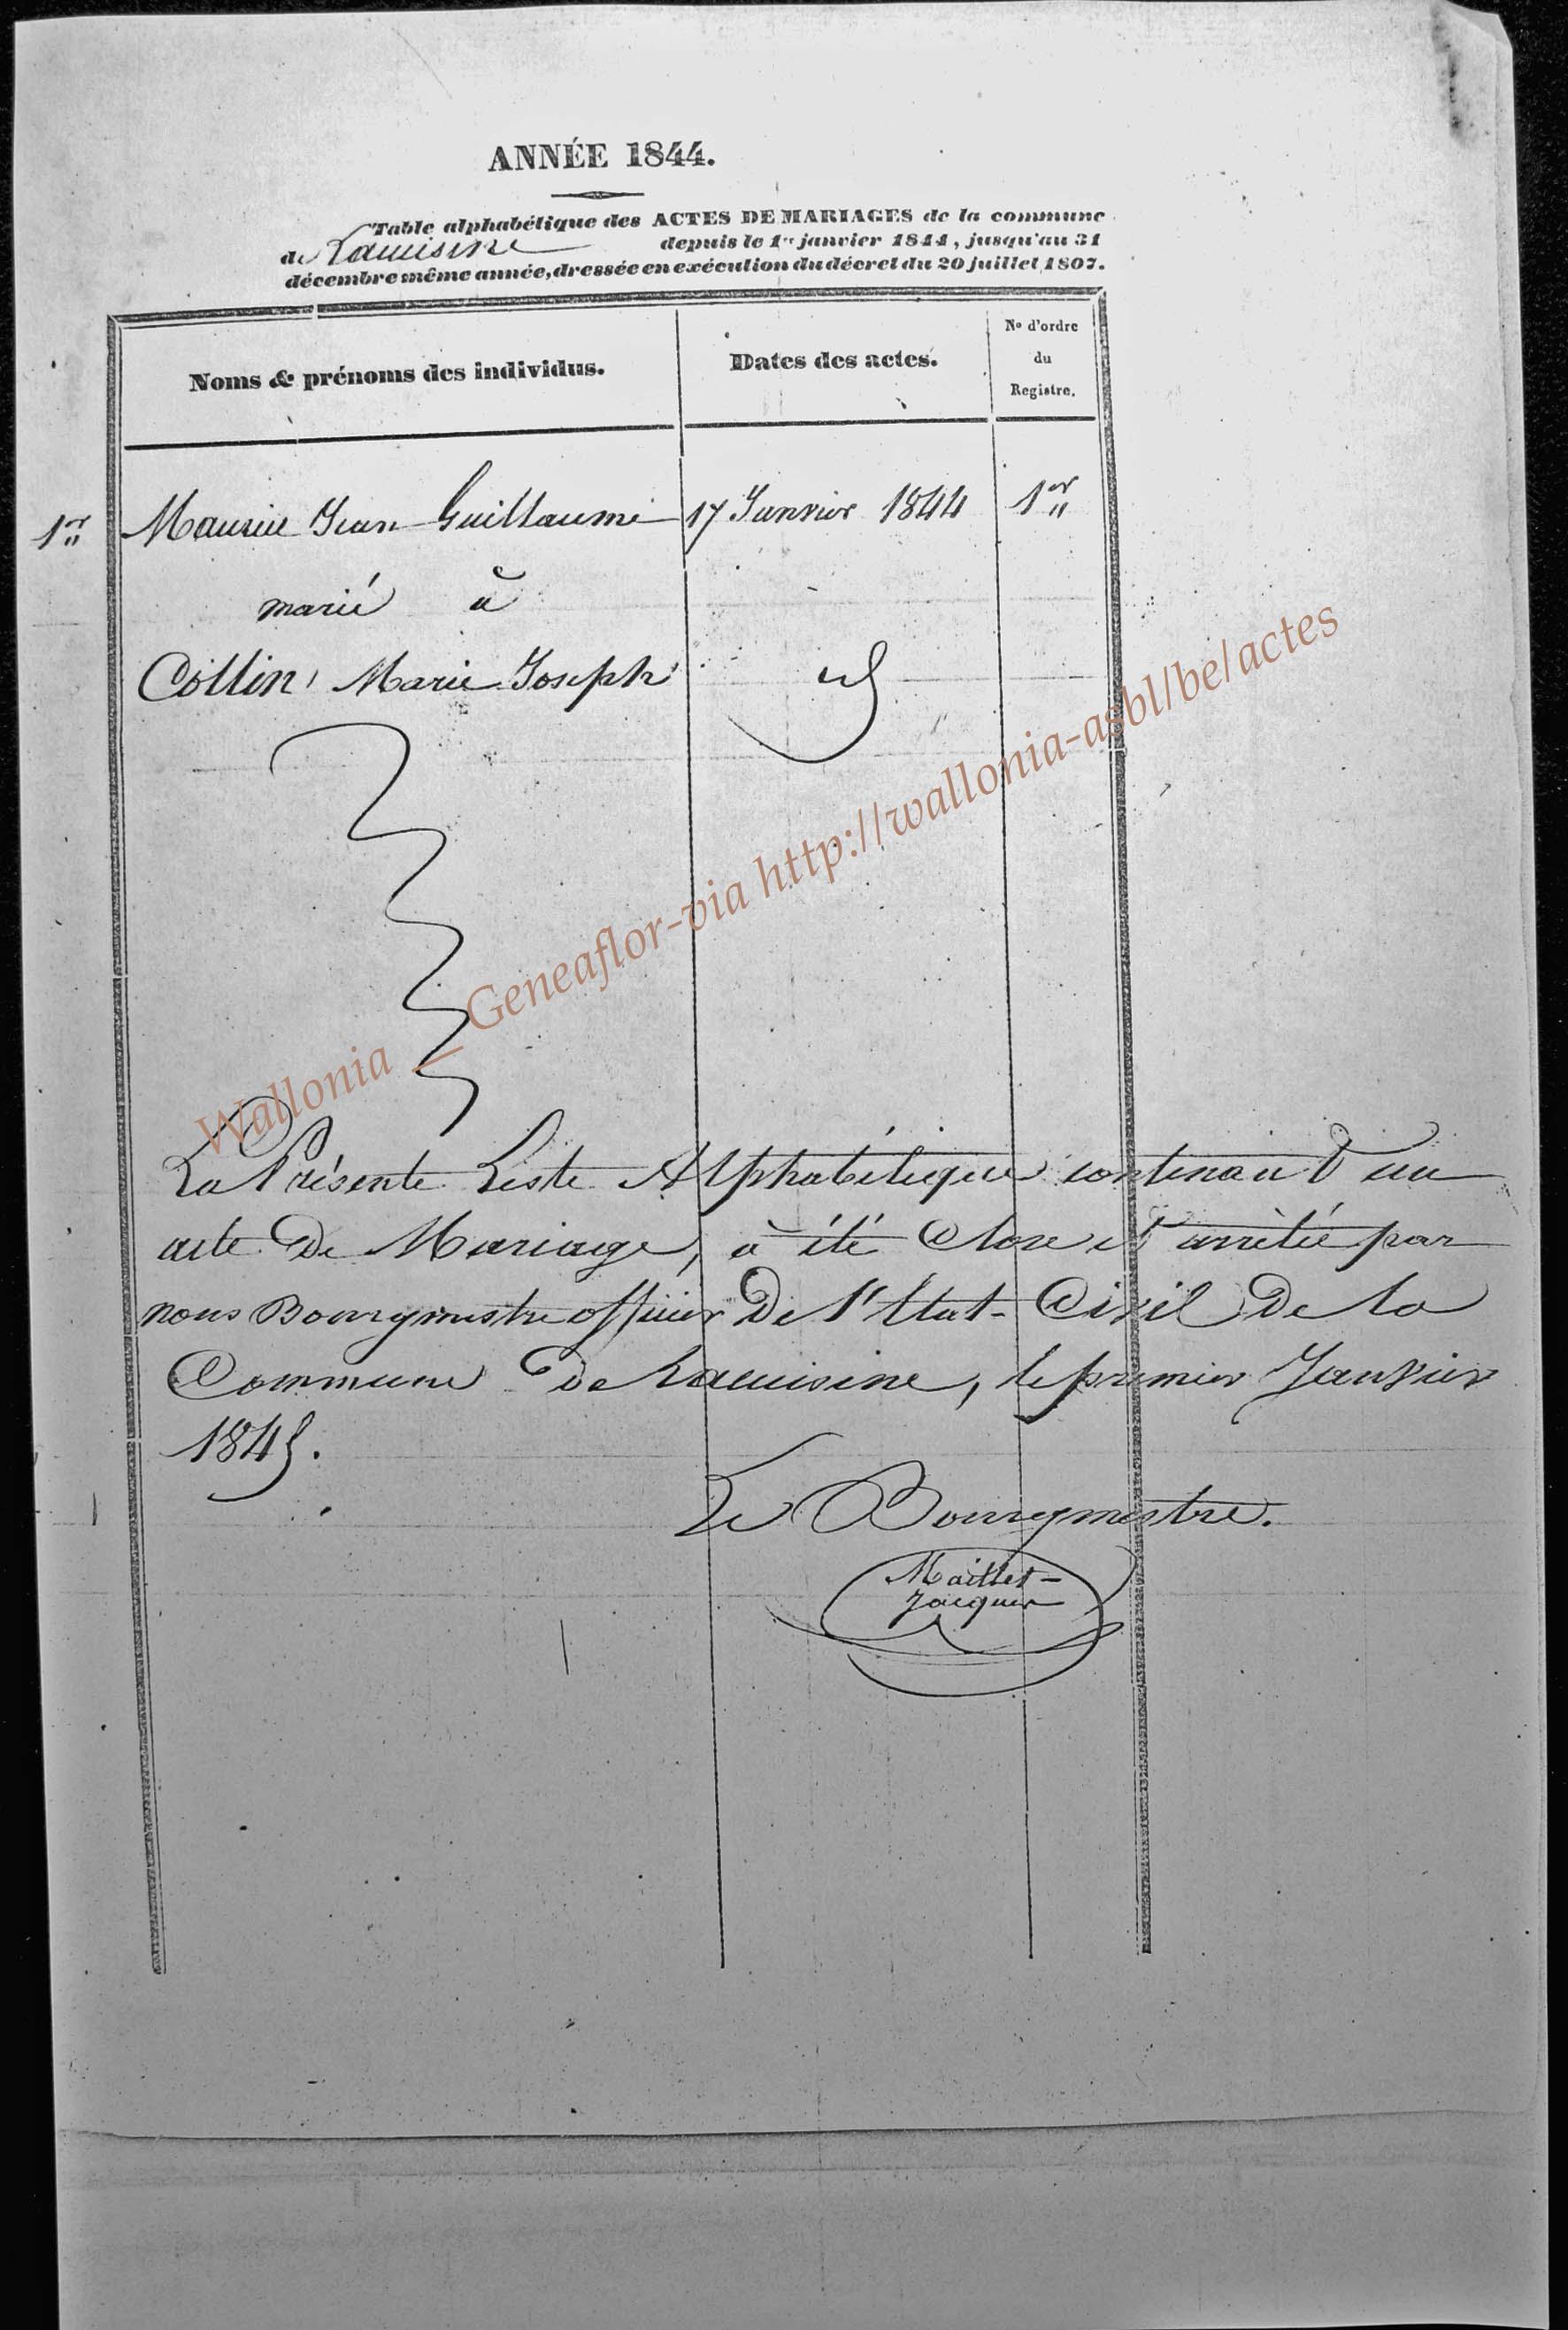 ANNÉE 1844.
Table alphabétique des ACTES DE MARIAGES de la commune
de Lacuisine depuis le 1er janvier 1844, jusqu'au 31
décembre même année, dressée en exécution du décret du 20 juillet 1807.
Noms & prénoms des individus. Dates des actes. No d'ordre du Registre.
1er Maurice Jean Guillaume 17 Janvier 1844 1er
marié à
Collin, Marie Joseph
Wallonia _ Geneaflor-via http://wallonia-asbl/be/actes
La Présente Liste Alphabétique contenant un
acte De Mariage, à été Close et arrêtée par
nous Bourgmestre officier De l'Etat-Civil De la
Commune de Lacuisine, le premier Janvier
1845.
Le Bourgmestre.
Maillet-
Jacques